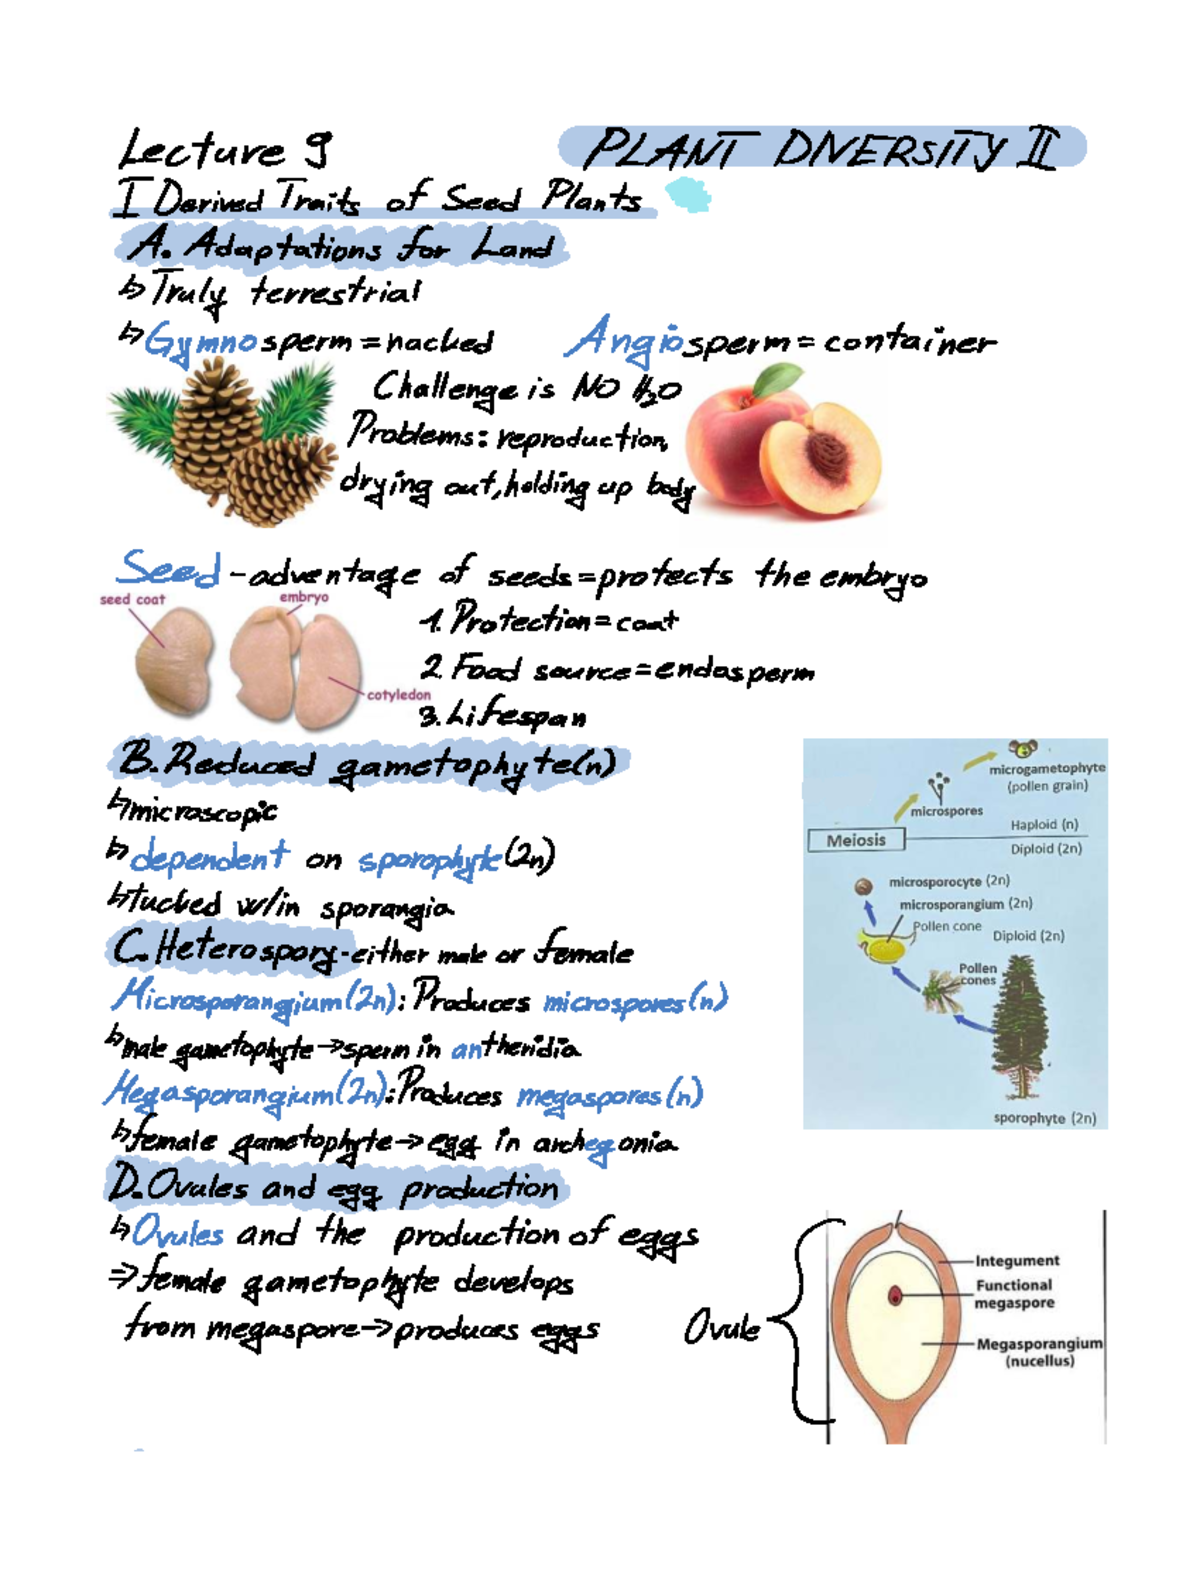 Lecture 9
PLANT DIVERSITY II
I Derived Traits of Seed Plants
A. Adaptations for Land
↳ Truly terrestrial
↳ Gymnosperm = nacked
Angiosperm = container
Challenge is NO H₂O
Problems: reproduction,
drying out, holding up body
Seed - adventage of seeds = protects the embryo
seed coat
embryo
cotyledon
1. Protection = coat
2. Food source = endosperm
3. Lifespan
B. Reduced gametophyte(n)
↳ microscopic
↳ dependent on sporophyte (2n)
↳ tucked w/in sporangia
C. Heterospory - either male or female
Microsporangium (2n): Produces microspores (n)
↳ male gametophyte → sperm in antheridia
Megasporangium (2n): Produces megaspores (n)
↳ female gametophyte → egg in archegonia
microgametophyte
(pollen grain)
microspores
Haploid (n)
Meiosis
Diploid (2n)
microsporocyte (2n)
microsporangium (2n)
Pollen cone
Diploid (2n)
Pollen
cones
sporophyte (2n)
D. Ovules and egg production
↳ Ovules and the production of eggs
⇒ female gametophyte develops
from megaspore → produces eggs
Ovule
Integument
Functional
megaspore
Megasporangium
(nucellus)